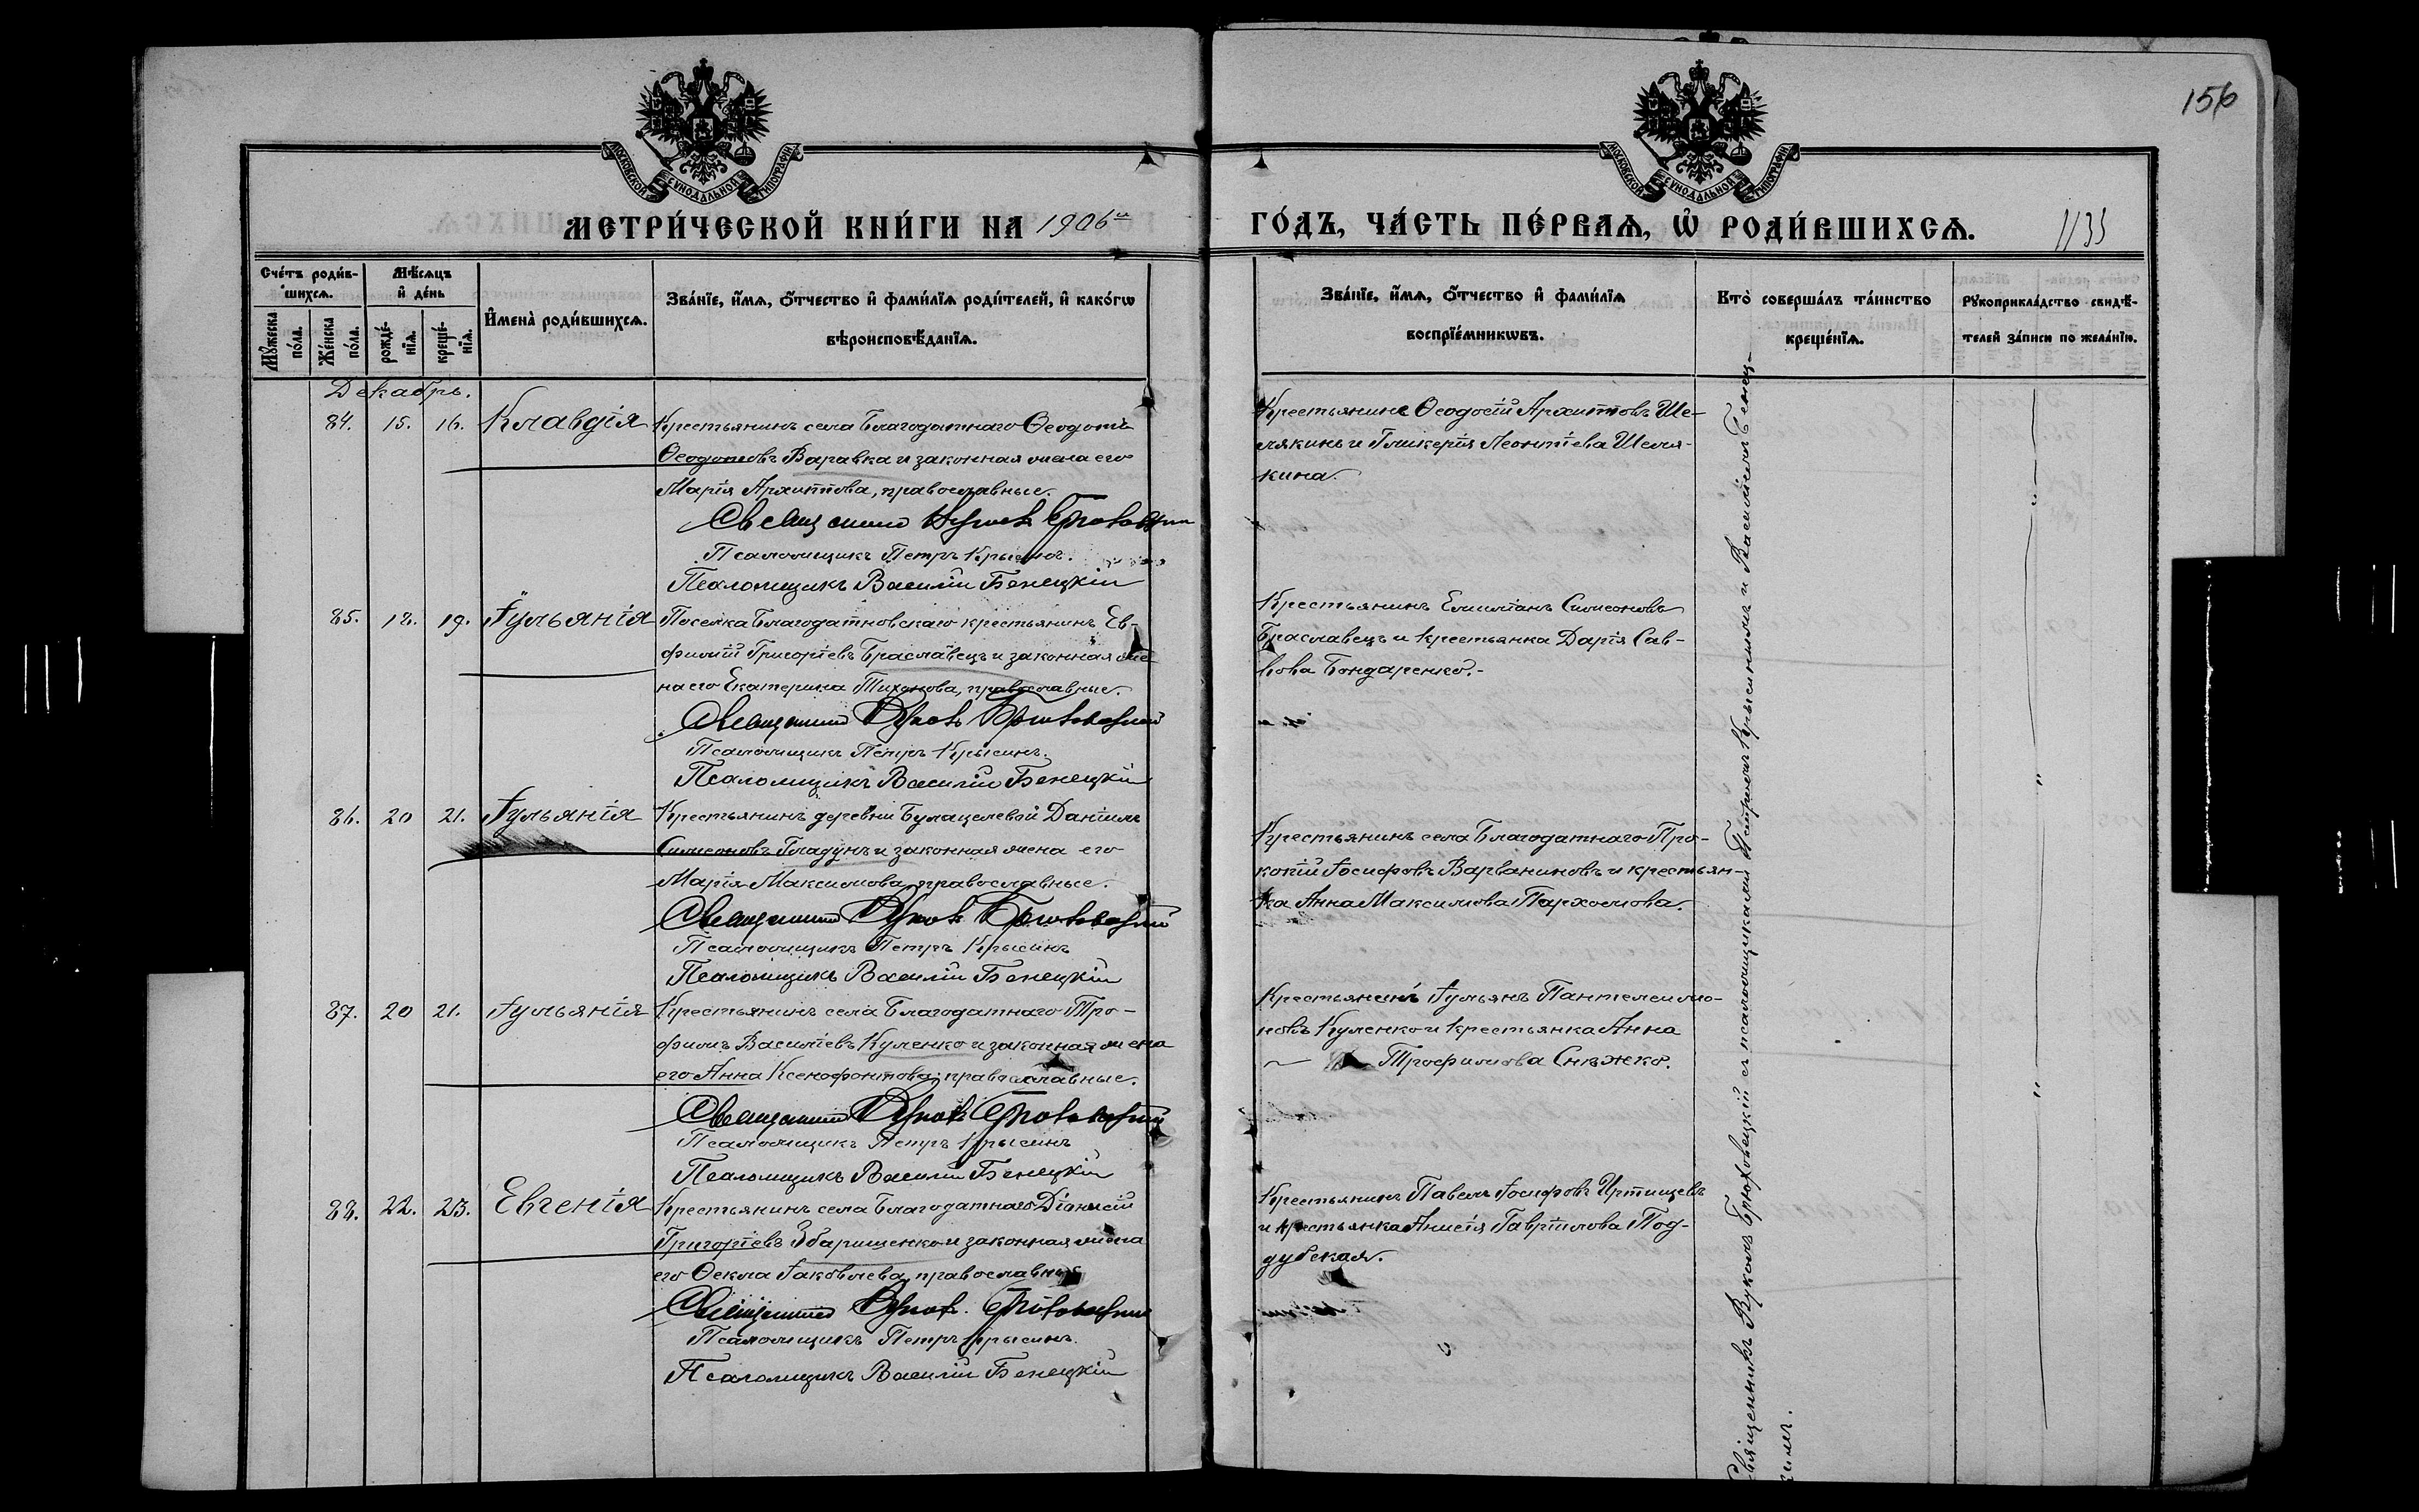 156
МОСКОВСКОЙ СУНОДАЛЬНОЙ ТИПОГРАФІИ
МОСКОВСКОЙ СУНОДАЛЬНОЙ ТИПОГРАФІИ
МЕТРИ́ЧЕСКОЙ КНИ́ГИ НА 1906й
ГО́ДЪ, ЧА́СТЬ ПЕ́РВАѦ, Ѡ҆ РОДИ́ВШИХСѦ.
1135
Сче́тъ роди́в-
шихсѧ.
Мꙋ́жеска по́ла.
Же́нска по́ла.
Мѣ́сѧцъ
и҆ де́нь
рожде́-
нїѧ.
креще́-
нїѧ.
И҆мена̀ роди́вшихсѧ.
Зва́нїе, и҆́мѧ, ѻ҆́тчество и҆ фами́лїѧ роди́телей, и҆ како́гѡ
вѣроисповѣ́данїѧ.
Зва́нїе, и҆́мѧ, ѻ҆́тчество и҆ фами́лїѧ
воспрїе́мникѡвъ.
Кто̀ соверша́лъ та́инство
креще́нїѧ.
Рꙋкоприкла́дство свидѣ́-
телей за́писи по жела́нїю.
Декабрь.
84. 15. 16. Клавдія
Крестьянинъ села Благодатнаго Ѳеодотъ
Ѳеодотовъ Варавка и законная жена его
Марія Архиппова, православные.
Священникъ
Псаломщикъ Петръ Крысинъ.
Псаломщикъ Василій Бенецкій
Крестьянинъ Ѳеодосій Архипповъ Ше-
лякинъ и Гликерія Леонтіева Шеля-
кина.
85. 18. 19. Іульянія
Поселка Благодатновскаго крестьянинъ Ев-
фимій Григоріевъ Браславецъ и законная же-
на его Екатерина Тихонова, православные.
Священникъ
Псаломщикъ Петръ Крысинъ.
Псаломщикъ Василій Бенецкій
Крестьянинъ Емиліанъ Симеоновъ
Браславецъ и крестьянка Дарія Сав-
вова Бондаренко.-
86. 20 21. Іульянія
Крестьянинъ деревни Булацелевой Даніилъ
Симеоновъ Гладунъ и законная жена его
Марія Максимова, православные.
Священникъ
Псаломщикъ Петръ Крысинъ
Псаломщикъ Василій Бенецкій
Крестьянинъ села Благодатнаго Про-
копій Іосифовъ Варваниновъ и крестьян-
ка Анна Максимова Пархомова.
87. 20 21. Іульянія
Крестьянинъ села Благодатнаго Тро-
фимъ Василіевъ Куленко и законная жена
его Анна Ксенофонтова, православные.
Священникъ
Псаломщикъ Петръ Крысинъ
Псаломщикъ Василій Бенецкій
Крестьянинъ Іульянъ Пантелеимо-
новъ Куленко и крестьянка Анна
Трофимова Снѣжко.
88. 22. 23. Евгенія
Крестьянинъ села Благодатнаго Діонисій
Григоріевъ Збарищенко и законная жена
его Ѳекла Іаковлева, православные
Священникъ
Псаломщикъ Петръ Крысинъ.
Псаломщикъ Василій Бенецкій
Крестьянинъ Павелъ Іосифовъ Иртищевъ
и крестьянка Анисія Гавріилова Под-
дубская.
Священникъ Вуколъ Брюховецкій съ псаломщиками Петромъ Крысинымъ и Василіемъ Бенец-
кимъ.